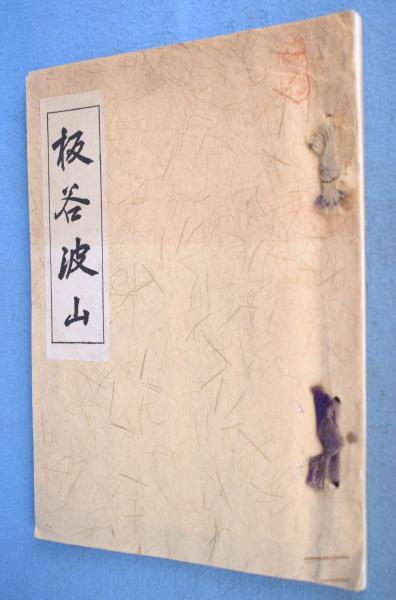 板谷波山